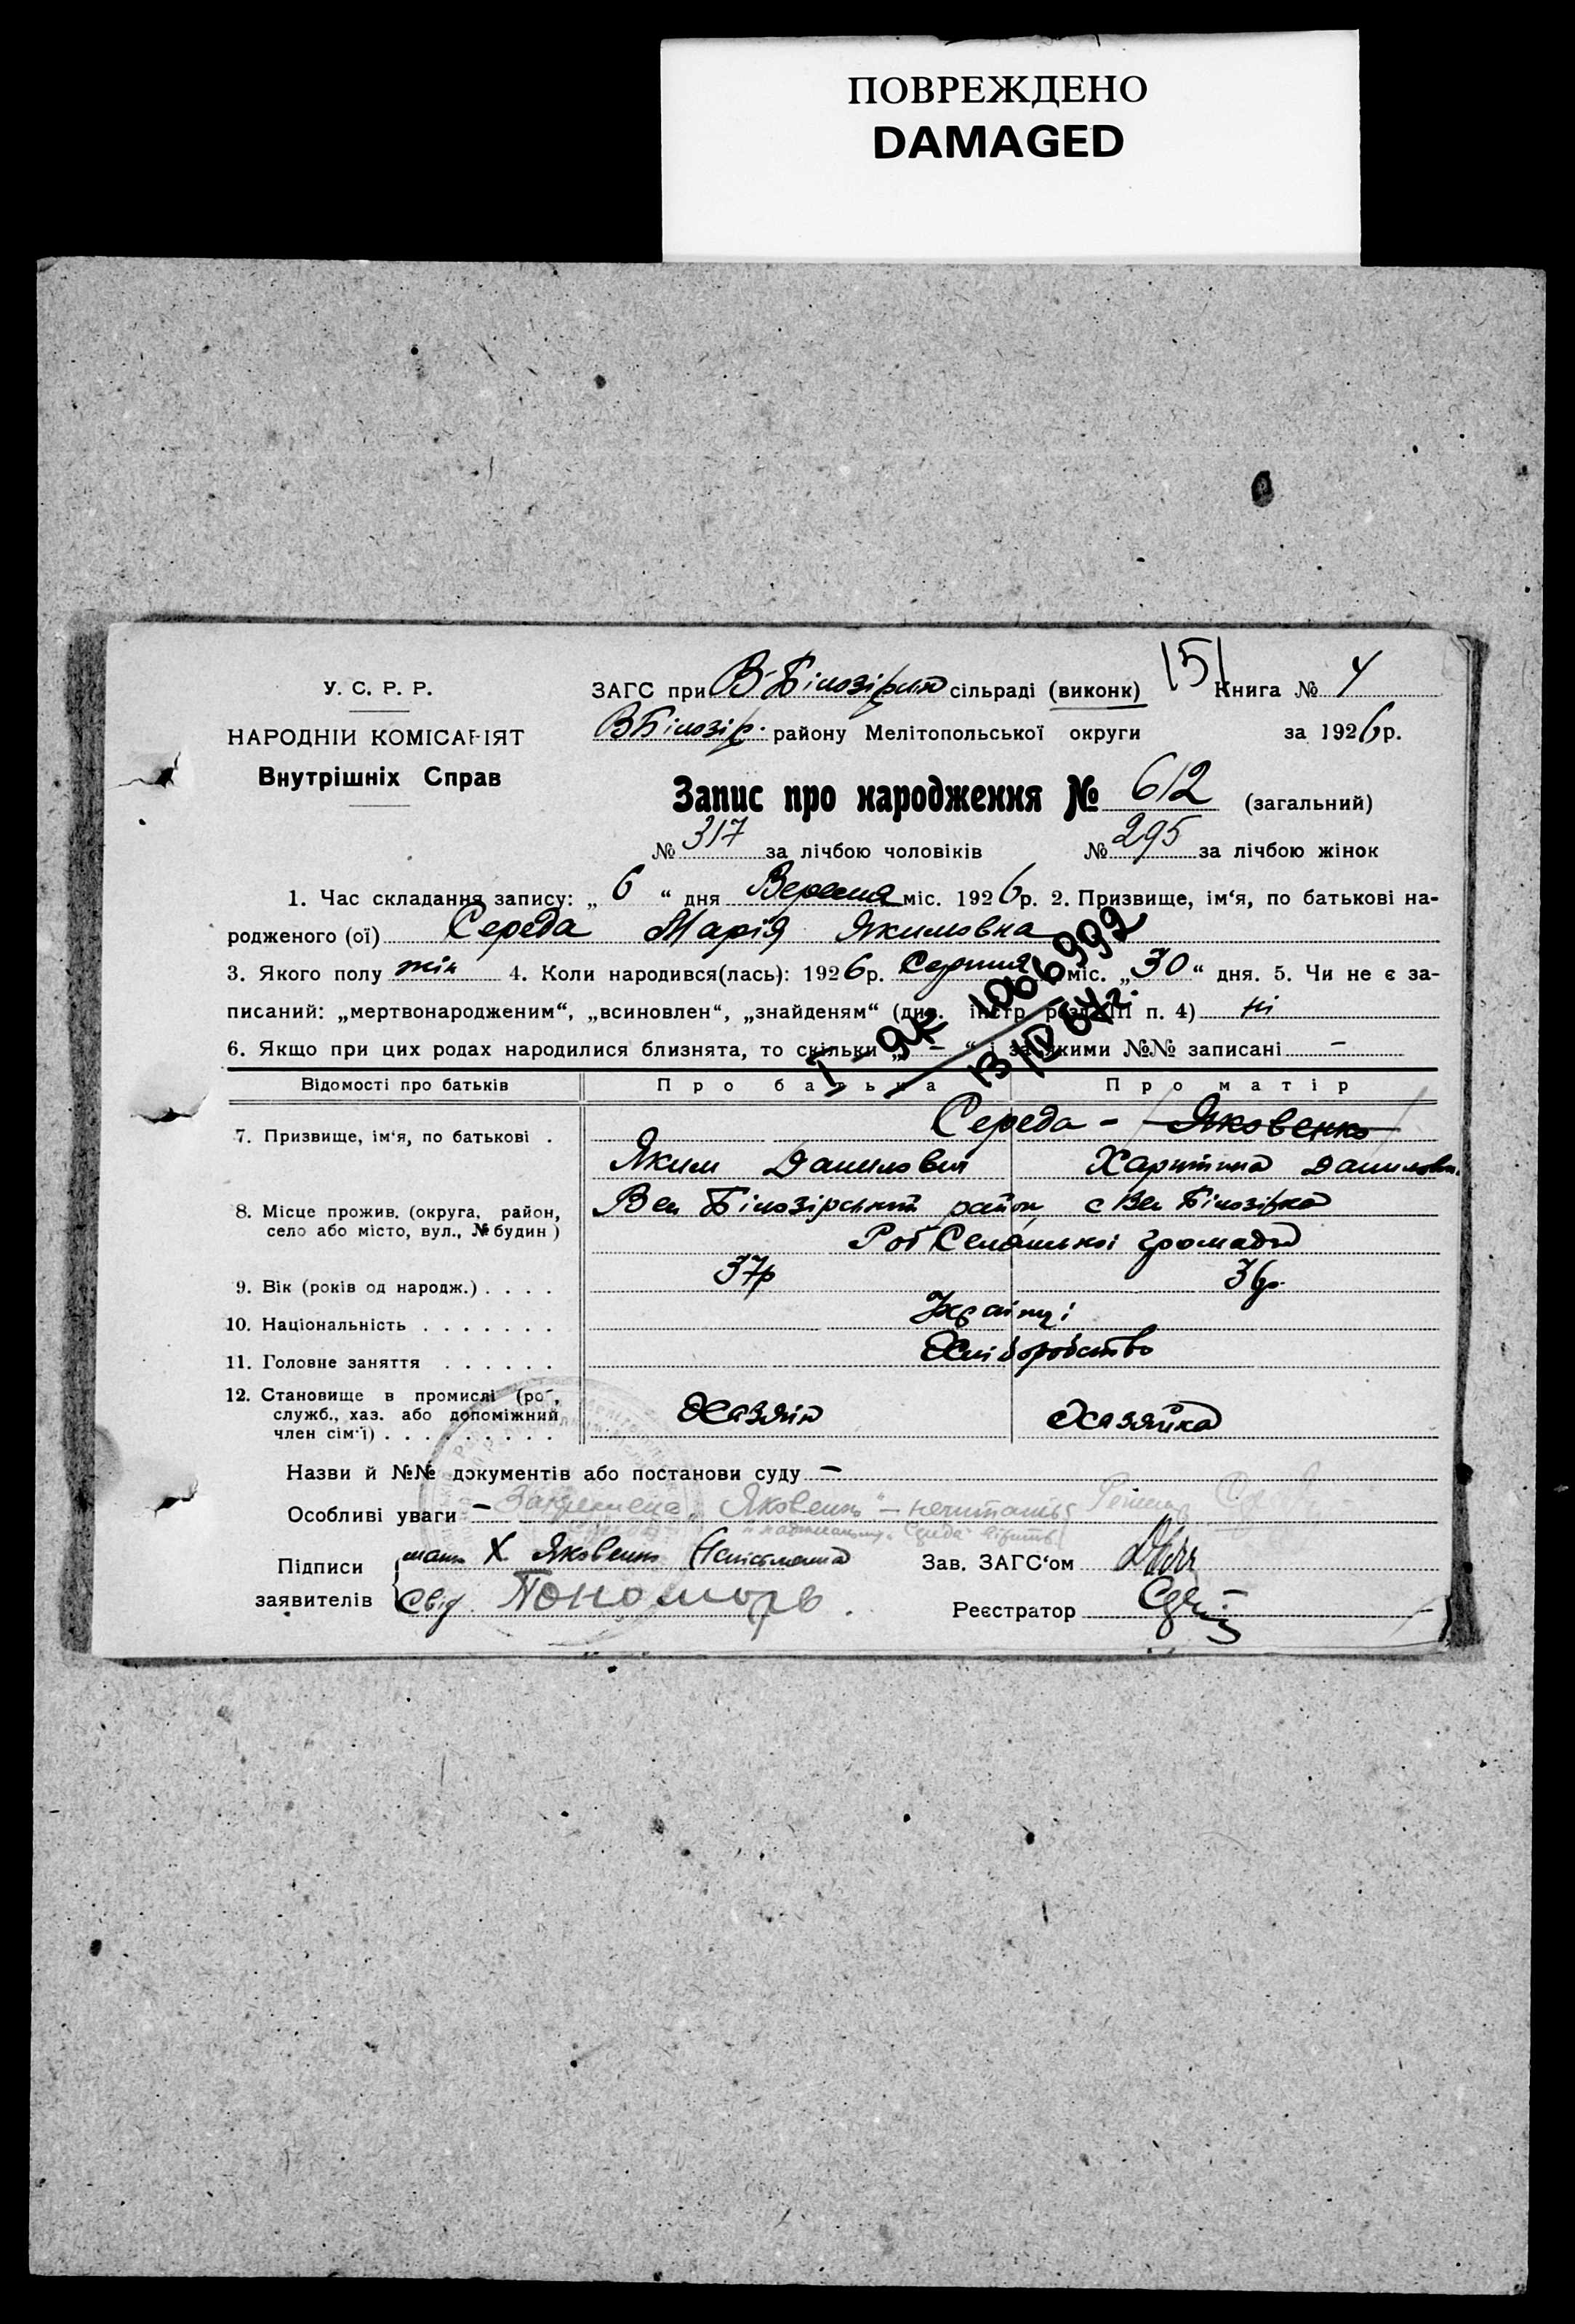 ПОВРЕЖДЕНО
DAMAGED
У. С. Р. Р.
НАРОДНІЙ КОМІСАРІЯТ
Внутрішніх Справ
ЗАГС при В-Білозірск сільраді (виконк) 151 Книга № 4
ВБілозір. району Мелітопольської округи за 1926 р.
Запис про народження № 612 (загальний)
№ 317 за лічбою чоловіків № 295 за лічбою жінок
1. Час складання запису: „ 6 “ дня Вересня міс. 1926 р. 2. Призвище, ім‘я, по батькові на-
родженого (ої) Середа Марія Якимовна
3. Якого полу жін 4. Коли народився(лась): 1926 р. Серпня міс. „30“ дня. 5. Чи не є за-
писаний: „мертвонародженим“, „всиновлен“, „знайденям“ (див. інстр. розд. III п. 4) ні
6. Якщо при цих родах народилися близнята, то скільки „ – “ і за якими №№ записані –
I-ЯК 1066992
13/IV 64г.
Відомості про батьків Про батька Про матір
7. Призвище, ім‘я, по батькові . Середа - Яковенко
Яким Данилович Харитина Даниловн.
8. Місце прожив. (округа, район, Вел Білозірський район с Вел Білозірка
село або місто, вул., № будин) Роб Селянської громади
9. Вік (років од народж.) . . . . 37р 36р.
10. Національність . . . . . . . Українці
11. Головне заняття . . . . . . Хліборобство
12. Становище в промислі (роб.,
служб., хаз. або допоміжний Хазяїн Хазяйка
член сім‘ї) . . . . . . . . .
Назви й №№ документів або постанови суду –
Особливі уваги – Закреслене „Яковенко“ – нечитать
„надписаному „Середа“ вірить
Підписи мати Х Яковенко (Неписьменна) Зав. ЗАГС‘ом
заявителів Свід. Пономарь. Реєстратор